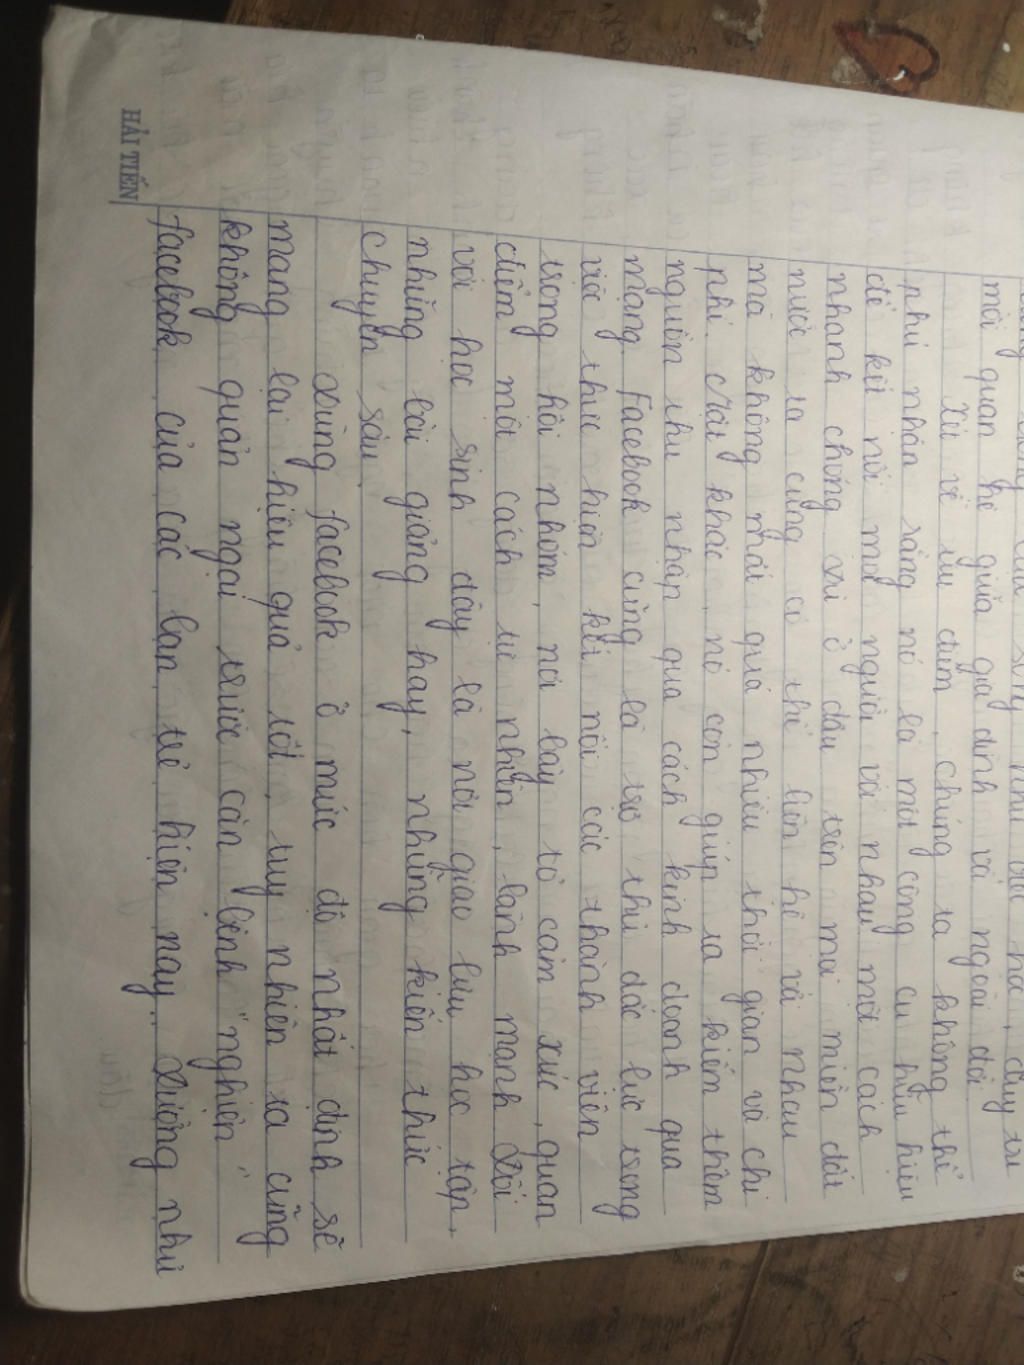 mối quan hệ giữa gia đình và ngoài đời
Xét về ưu điểm, chúng ta không thể
phủ nhận rằng nó là một công cụ hữu hiệu
để kết nối mọi người với nhau một cách
nhanh chóng dù ở đâu trên mọi miền đất
nước ta cũng có thể liên hệ với nhau
mà không mất quá nhiều thời gian và chi
phí. Mặt khác, nó còn giúp ta kiếm thêm
nguồn thu nhập qua cách kinh doanh qua
mạng. Facebook cũng là trợ thủ đắc lực trong
việc thực hiện kết nối các thành viên
trong hội nhóm, nơi bày tỏ cảm xúc, quan
điểm một cách tự nhiên, lành mạnh. Đối
với học sinh đây là nơi giao lưu học tập,
những bài giảng hay, những kiến thức
chuyên sâu.
Dùng facebook ở mức độ nhất định sẽ
mang lại hiệu quả tốt, tuy nhiên ta cũng
không quản ngại trước căn bệnh "nghiện"
facebook của các bạn trẻ hiện nay. Dường như
HẢI TIẾN